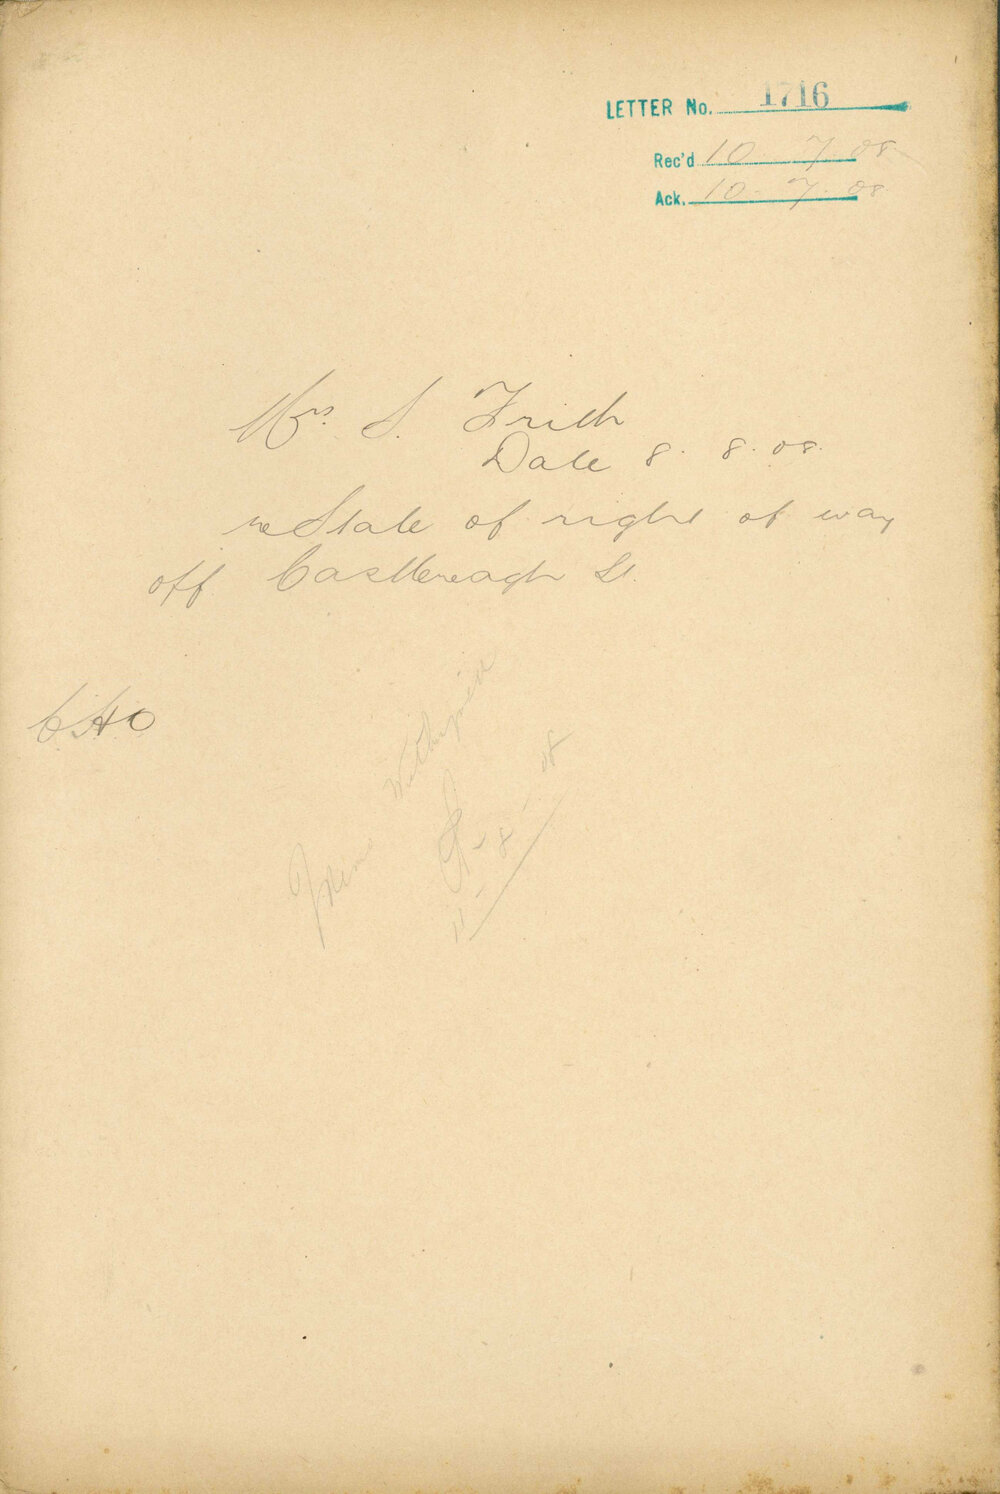 LETTER No. 1716
Rec'd 10. 7. 08
Ack. 10. 7. 08
Mrs. S. Frith
Date 8. 8. 08.
re State of right of way
off Castlereagh St.
C.H.O
11 - 8 - 08